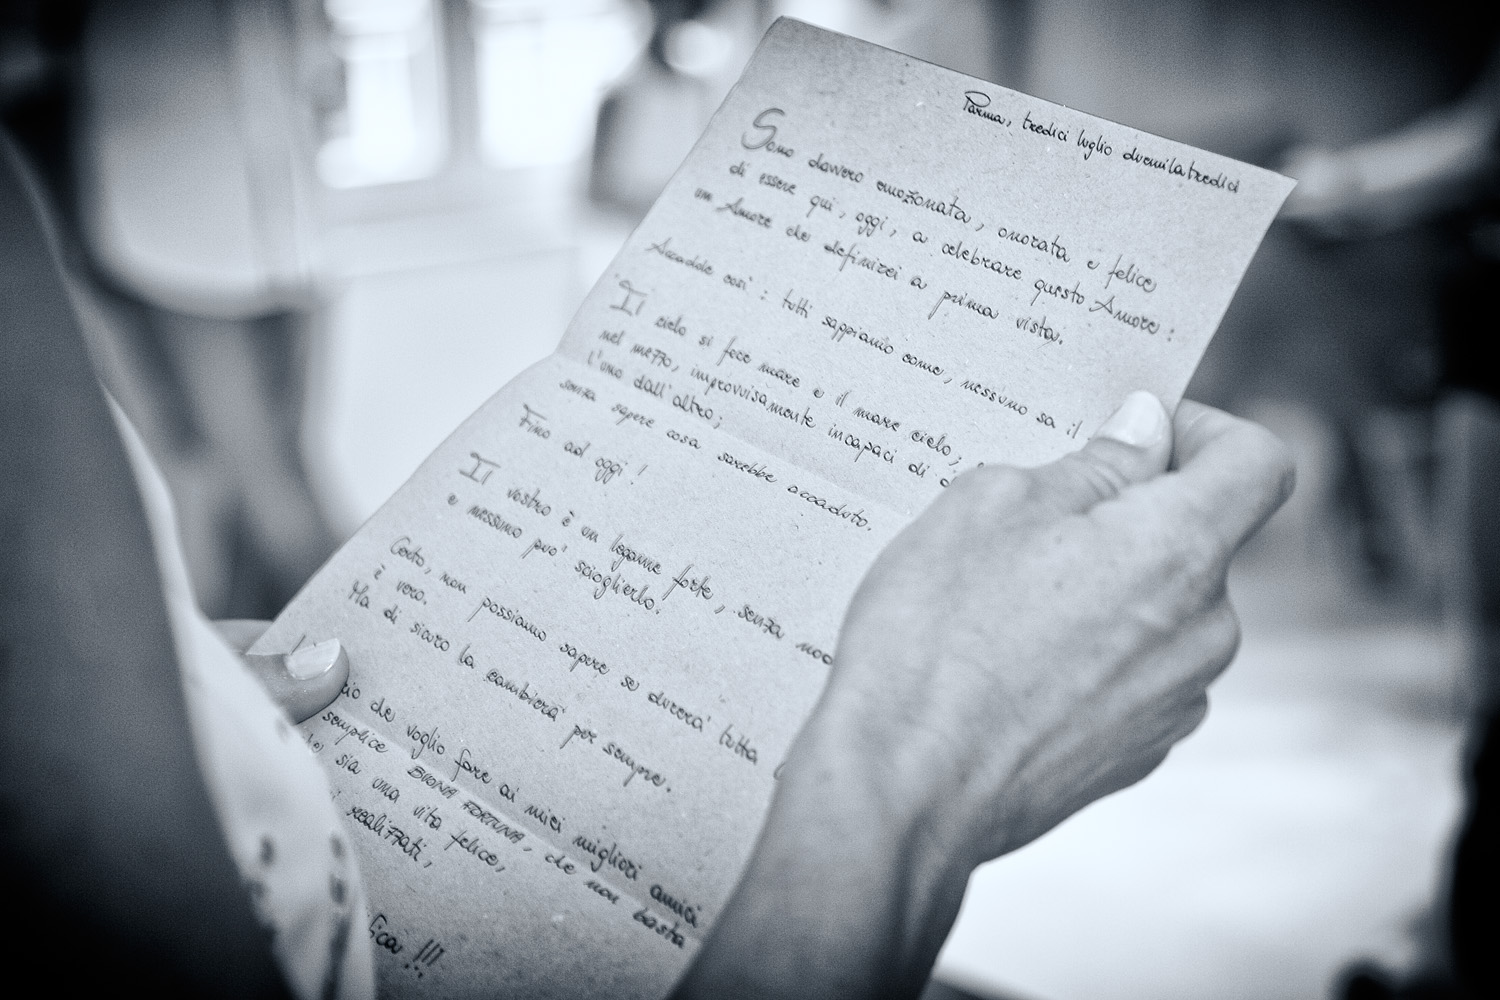 Parma, tredici luglio duemilatredici
Sono davvero emozionata, onorata e felice
di essere qui, oggi, a celebrare questo Amore:
un Amore che definirei a prima vista.
Accadde così: tutti sappiamo come, nessuno sa il
Il cielo si fece mare e il mare cielo;
nel mezzo, improvvisamente incapaci di
l'uno dall'altro;
senza sapere cosa sarebbe accaduto.
Fino ad oggi!
Il vostro è un legame forte, senza
e nessuno puo' scioglierlo.
Certo, non possiamo sapere se durera' tutta
è vero.
Ma di sicuro la cambiera' per sempre.
che voglio fare ai miei migliori amici
semplice BUONA FORTUNA, che non basta
sia una vita felice,
realizzati,
!!!